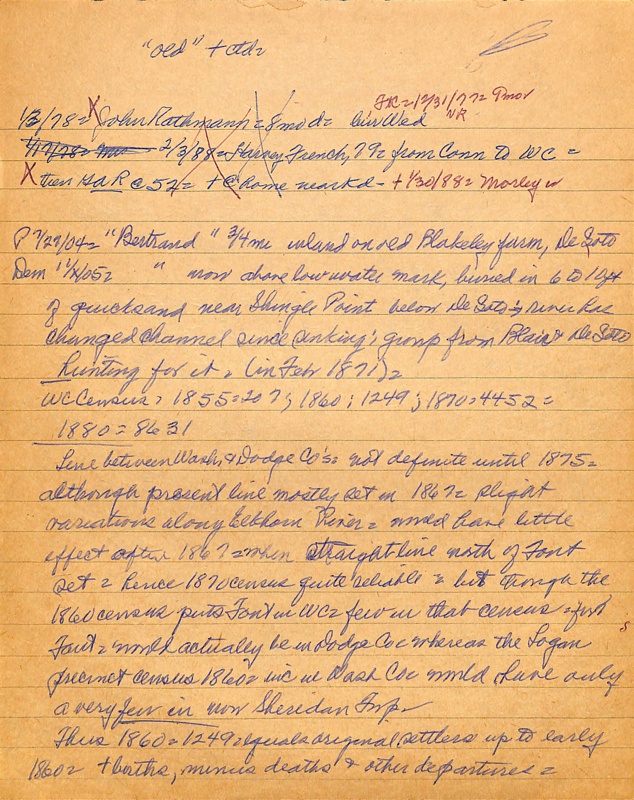 "old" + add=
FR=12/31/77= Pmor
1/3/78= X John Rathmann= 8 mo d= bur Wed NR
1/17/78= 2/3/88= Harvey French, 79= from Conn to WC =
X then HaR @ 52= + @ home near Kd- + 1/30/88= Morley
P 7/29/04= "Bertrand" 3/4 mi inland on old Blakeley farm, De Soto
Dem 05= " now above low water mark, buried in 6 to
of quicksand near Shingle Point below De Soto; river has
changed channel since sinking; group from Blair & De Soto
hunting for it = (in Feb 1871)=
WC Census= 1855=207; 1860; 1249; 1870=4452=
1880=8631
Line between Wash & Dodge Co's= not definite until 1875=
although present line mostly set in 1867= slight
variations along Elkhorn River= would have little
effect after 1867= when straight line north of Font
set= hence 1870 census quite reliable= but though the
1860 census puts Font in WC= few in that census= first
Font= would actually be in Dodge Co= whereas the Logan
precinct census 1860= inc in Wash Co= would have only
a very few in now Sheridan Twp=
Thus 1860=1249= equals original settlers up to early
1860= + births, minus deaths & other departures=